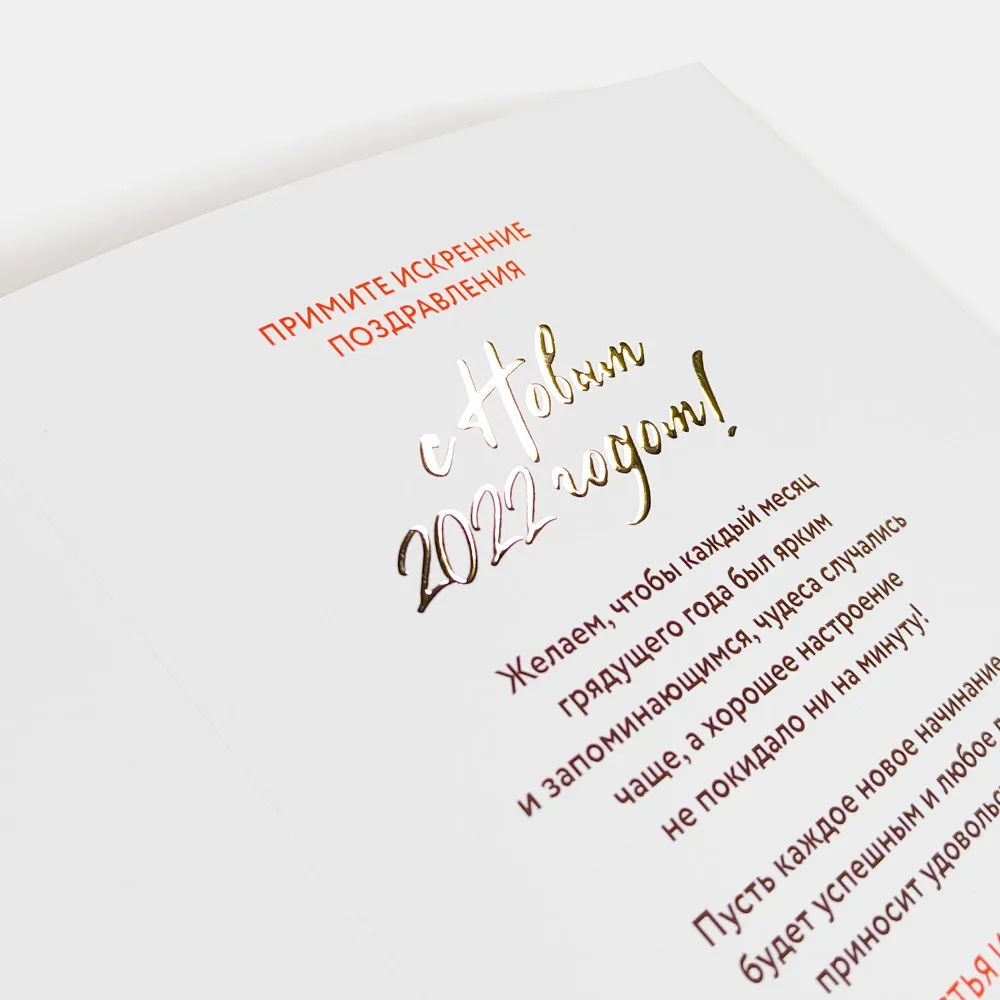 ПРИМИТЕ ИСКРЕННИЕ
ПОЗДРАВЛЕНИЯ
с Новым
2022 годом!
Желаем, чтобы каждый месяц
грядущего года был ярким
и запоминающимся, чудеса случались
чаще, а хорошее настроение
не покидало ни на минуту!
Пусть каждое новое начинание
будет успешным и любое
приносит